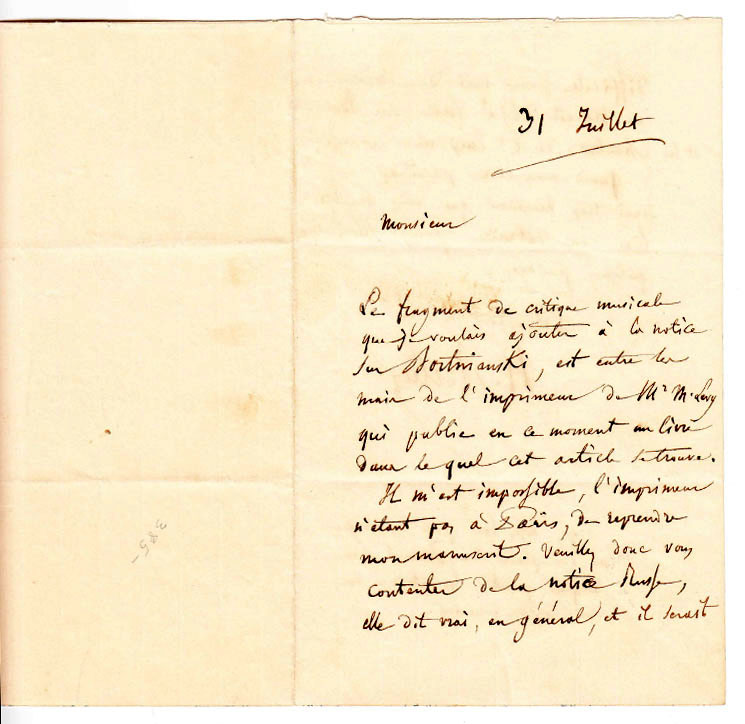 31 Juillet
Monsieur
Le fragment de critique musicale
que je voulais ajouter à la notice
sur Bortnianski, est entre les
main de l'imprimeur de Mr M. Levy
qui publie en ce moment un livre
dans le quel cet article se trouve.
Il m'est impossible, l'imprimeur
n'étant pas à Paris, de reprendre
mon manuscrit. Veuillez donc vous
contenter de la notice Russe,
elle dit vrai, en général, et il serait
385-